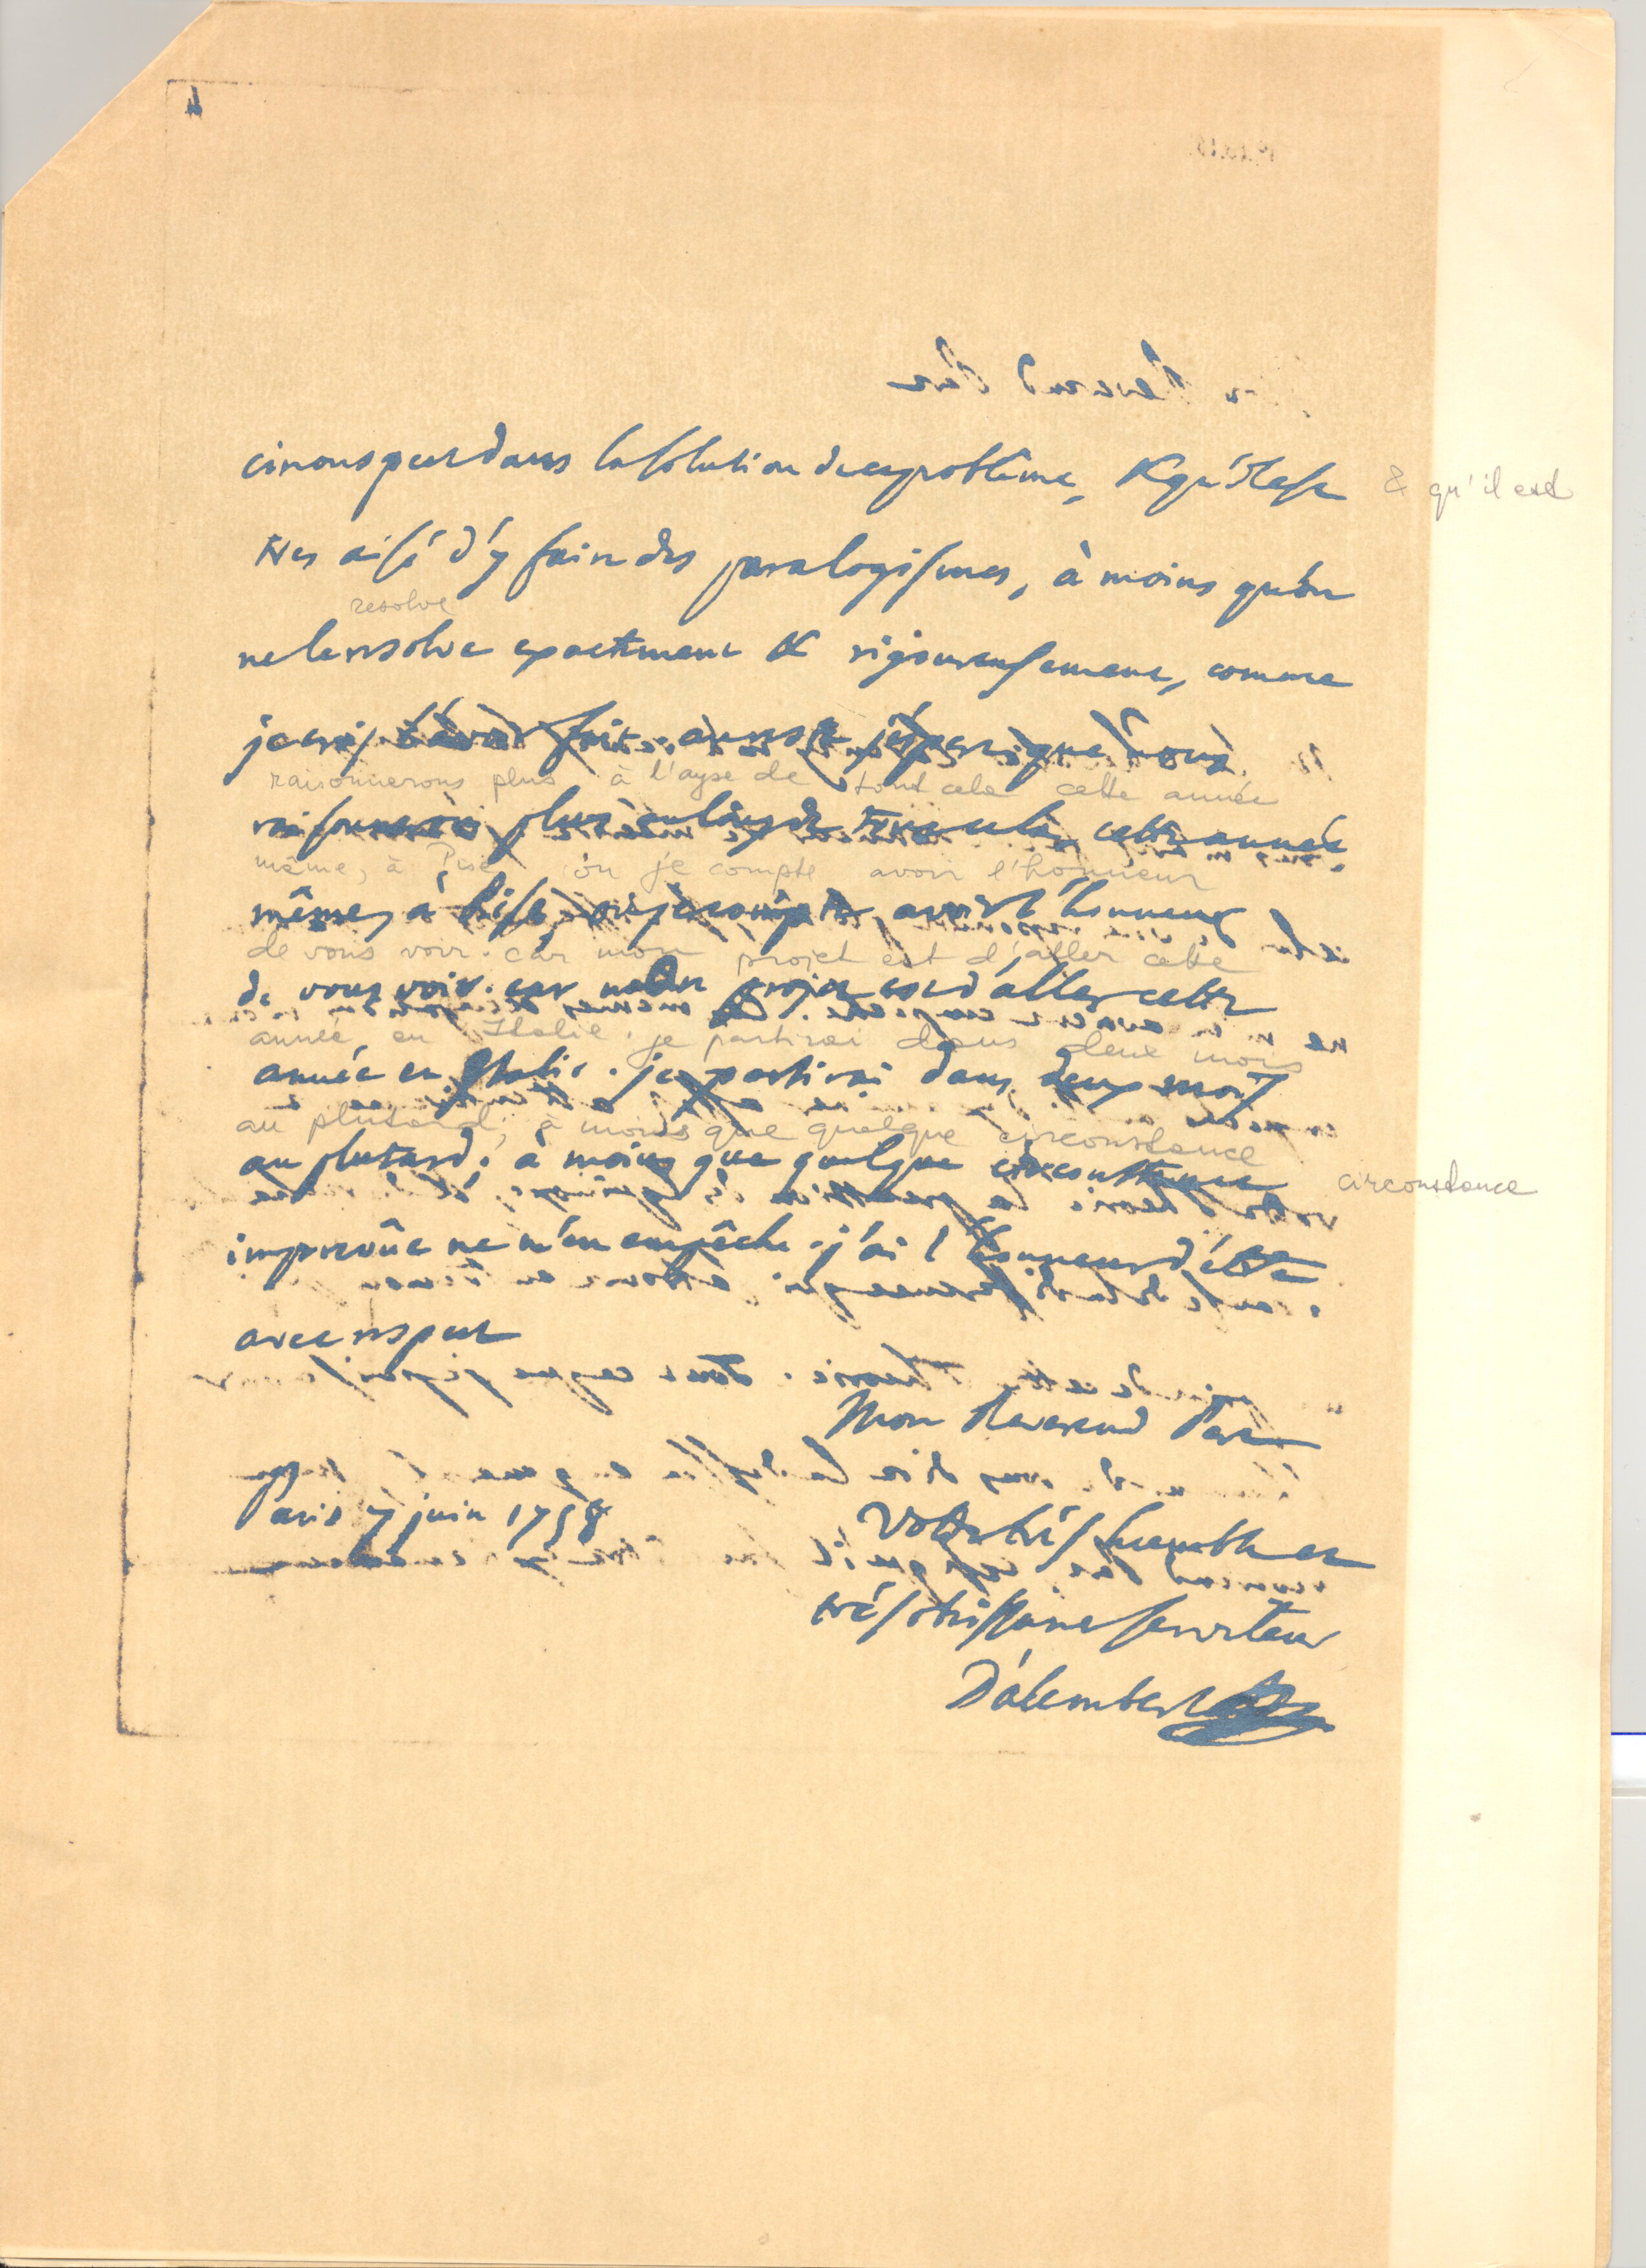 4
circonspect dans la solution de ce problême, & qu'il est
& qu'il est
tres aisé d'y faire des paralogismes, à moins qu'on
resolve
ne le resolve exactement & rigoureusement, comme
je crois l'avoir fait. au reste j'espere que nous
raisonnerons plus à l'ayse de tout cela cette année
raisonnerons plus à l'ayse de tout cela, cette année
même, à Pise où je compte avoir l'honneur
même, à Pise, où je compte avoir l'honneur
de vous voir. car mon projet est d'aller cette
de vous voir. car mon projet est d'aller cette
année, en Italie. je partirai dans deux mois
année en Italie. je partirai dans deux mois
au plutard, à moins que quelque circonstance
au plutard, à moins que quelque circonstance
circonstance
imprevûe ne m'en empêche. j'ai l'honneur d'être
avec respect
Mon Reverend Pere
Paris 7 juin 1758
Votre très humble et
très obeissant serviteur
D'alembert